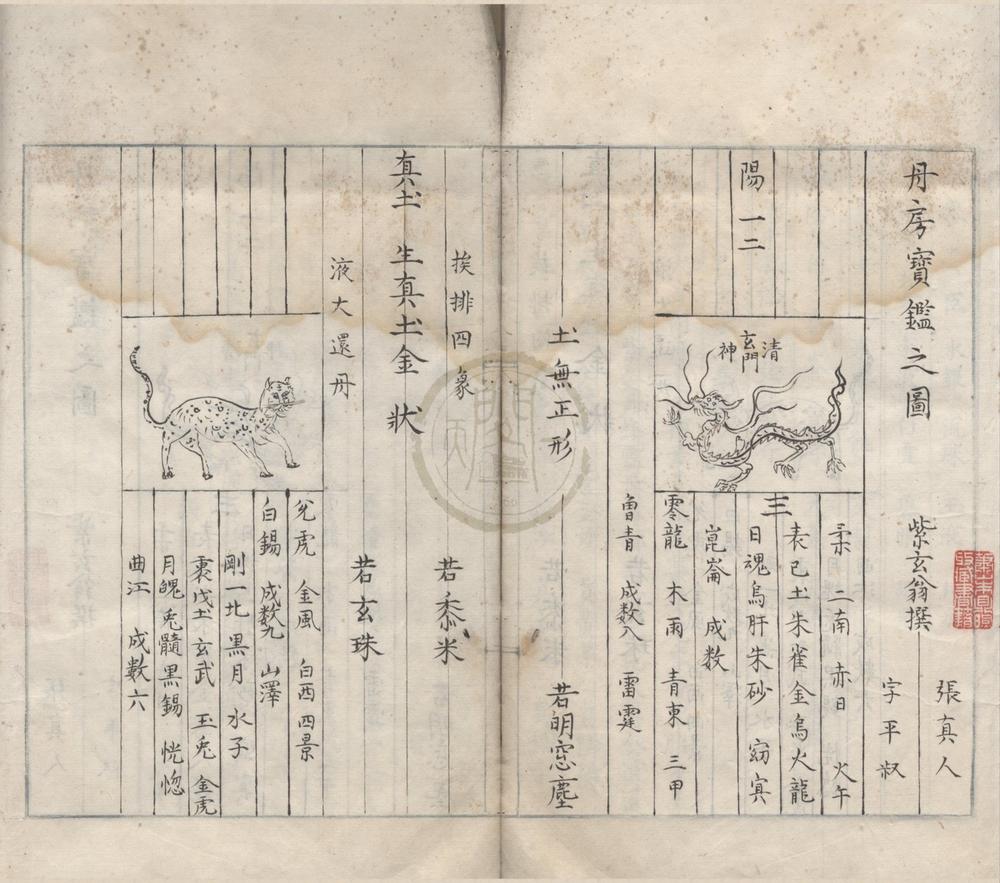 丹房寶鑑之圖
紫玄翁撰
張真人
字平叔
陽一二
清
玄門
神
三
柔 二南 赤日 火午
表己土朱雀金烏火龍
日魂烏肝朱砂 窈冥
崑崙 成数
零龍 木雨 青東 三甲
曾青 成数八 雷霆
土無正形 若明窓塵
挨排四象 若黍米
真土 生真土金 状
液大還丹 若玄珠
兊虎 金風 白西 四景
白錫 成数九 山澤
剛一北 黒月 水子
裏戊土 玄武 玉兎 金虎
月魄兎髓黒錫 恍惚
曲江 成數六